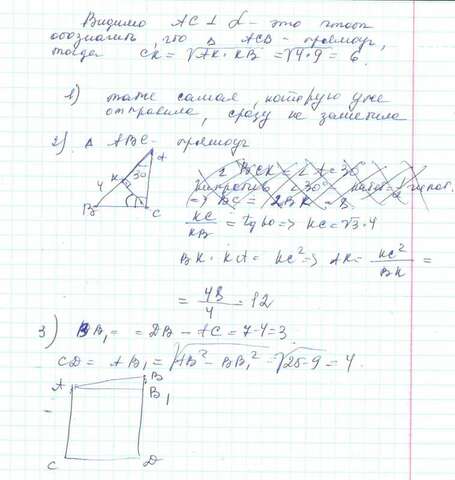 Видимо AC ⊥ α - это чтоб
обозначить, что в ACB - прямоуг,
тогда CK = √AK·KB = √4·9 = 6.
1) такая же самая, которую уже
отправила, сразу не заметила
2) △ ABC - прямоуг
A
30
K
4
B
C
∠BCK = ∠A = 30°
напротив ∠30°
=> BC = 2BK = 8
KC/KB = tg 60 => KC = √3·4
BK · KA = KC² => AK = KC²/BK =
= 48/4 = 12
3) BB₁ = = DB - AC = 7-4 = 3.
CD = AB₁ = √AB² - BB₁² = √25-9 = 4.
A
B
B₁
C
D